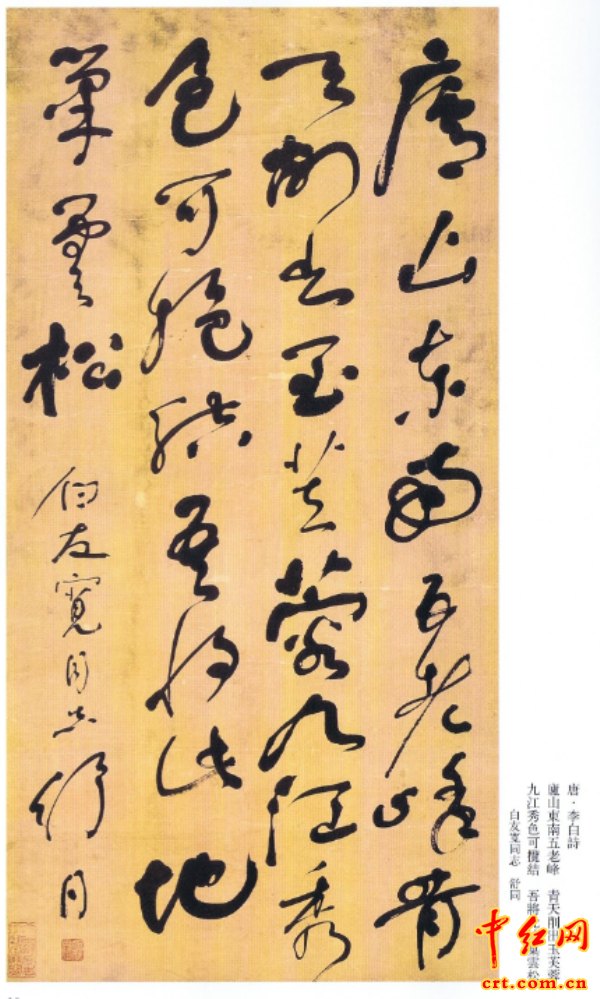 廬山東南五老峰青
天削出玉芙蓉九江秀
色可攬結吾將此地
巢雲松
白友寬同志 舒同
唐·李白詩
廬山東南五老峰 青天削出玉芙蓉
九江秀色可攬結 吾將巢雲松
白友寬同志 舒同
中红网
crt.com.cn